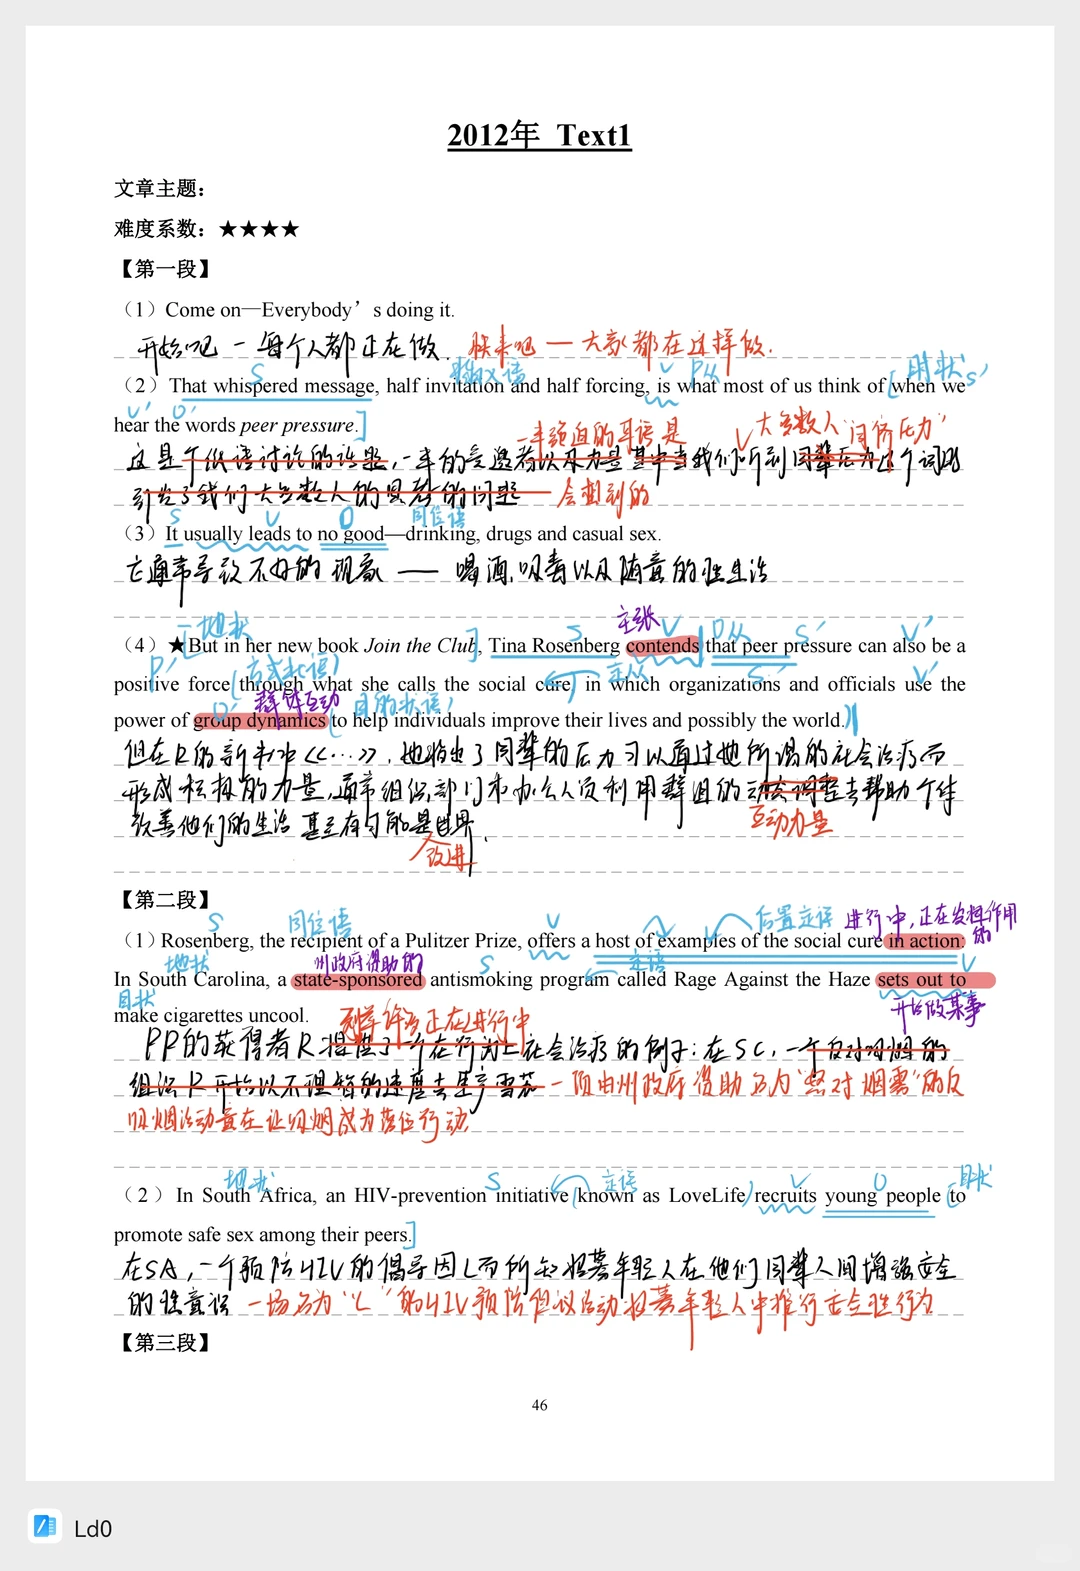 2012年 Text1
文章主题：
难度系数：★★★★
【第一段】
（1）Come on—Everybody’s doing it.
开始吧 — 每个人都正在做. 快来吧 — 大家都在这样做.
S 同位语 V P从 [时状 S'
（2）That whispered message, half invitation and half forcing, is what most of us think of when we
V' O'
hear the words peer pressure.]
一半强迫的耳语是 大多数人 "同侪压力"
这是个低语讨论的话题,一半的受邀者以及力量 其中当我们听到同辈压力这个词時
引发了我们大多数人的思考的问题 — 会想到的
S V O 同位语
（3）It usually leads to no good—drinking, drugs and casual sex.
它通常导致不好的现象 —— 喝酒、吸毒以及随意的性生活
[地状 主张 S V O从 S' V'
（4）★But in her new book Join the Club], Tina Rosenberg contends that peer pressure can also be a
P' (方式状语) 定从 S' V'
positive force through what she calls the social cure, in which organizations and officials use the
O' 群体互动 (目的状语)
power of group dynamics to help individuals improve their lives and possibly the world.
但在R的新书中《…》, 她指出了同辈的压力可以通过她所谓的社会治疗而
形成积极的力量,通常组织部门和办公人员利用群组的动态调整去帮助个体
互动力量
改善他们的生活 甚至有可能是世界.
改进
【第二段】
S 同位语 V 后置定语 进行中,正在发挥作用的
（1）Rosenberg, the recipient of a Pulitzer Prize, offers a host of examples of the social cure in action:
地状 州政府资助的 S 定语 V
In South Carolina, a state-sponsored antismoking program called Rage Against the Haze sets out to
目状 开始做某事
make cigarettes uncool.
列举许多正在进行中
PP的获得者R提供了一个在行为上社会治疗的例子:在SC,一个反对吸烟的
组织R开始以不理智的速度去生产雪茄 — 一项由州政府资助名为"怒对烟雾"的反
吸烟活动意在让吸烟成为落位行动
地状 S 定语 V O 目状
（2）In South Africa, an HIV-prevention initiative known as LoveLife recruits young people [to
promote safe sex among their peers.]
在SA,一个预防HIV的倡导因L而所知招募年轻人在他们同辈人间增强安全
的性意识 一场名为"L"的HIV预防倡议活动招募年轻人中推行安全性行为
【第三段】
46
Ld0